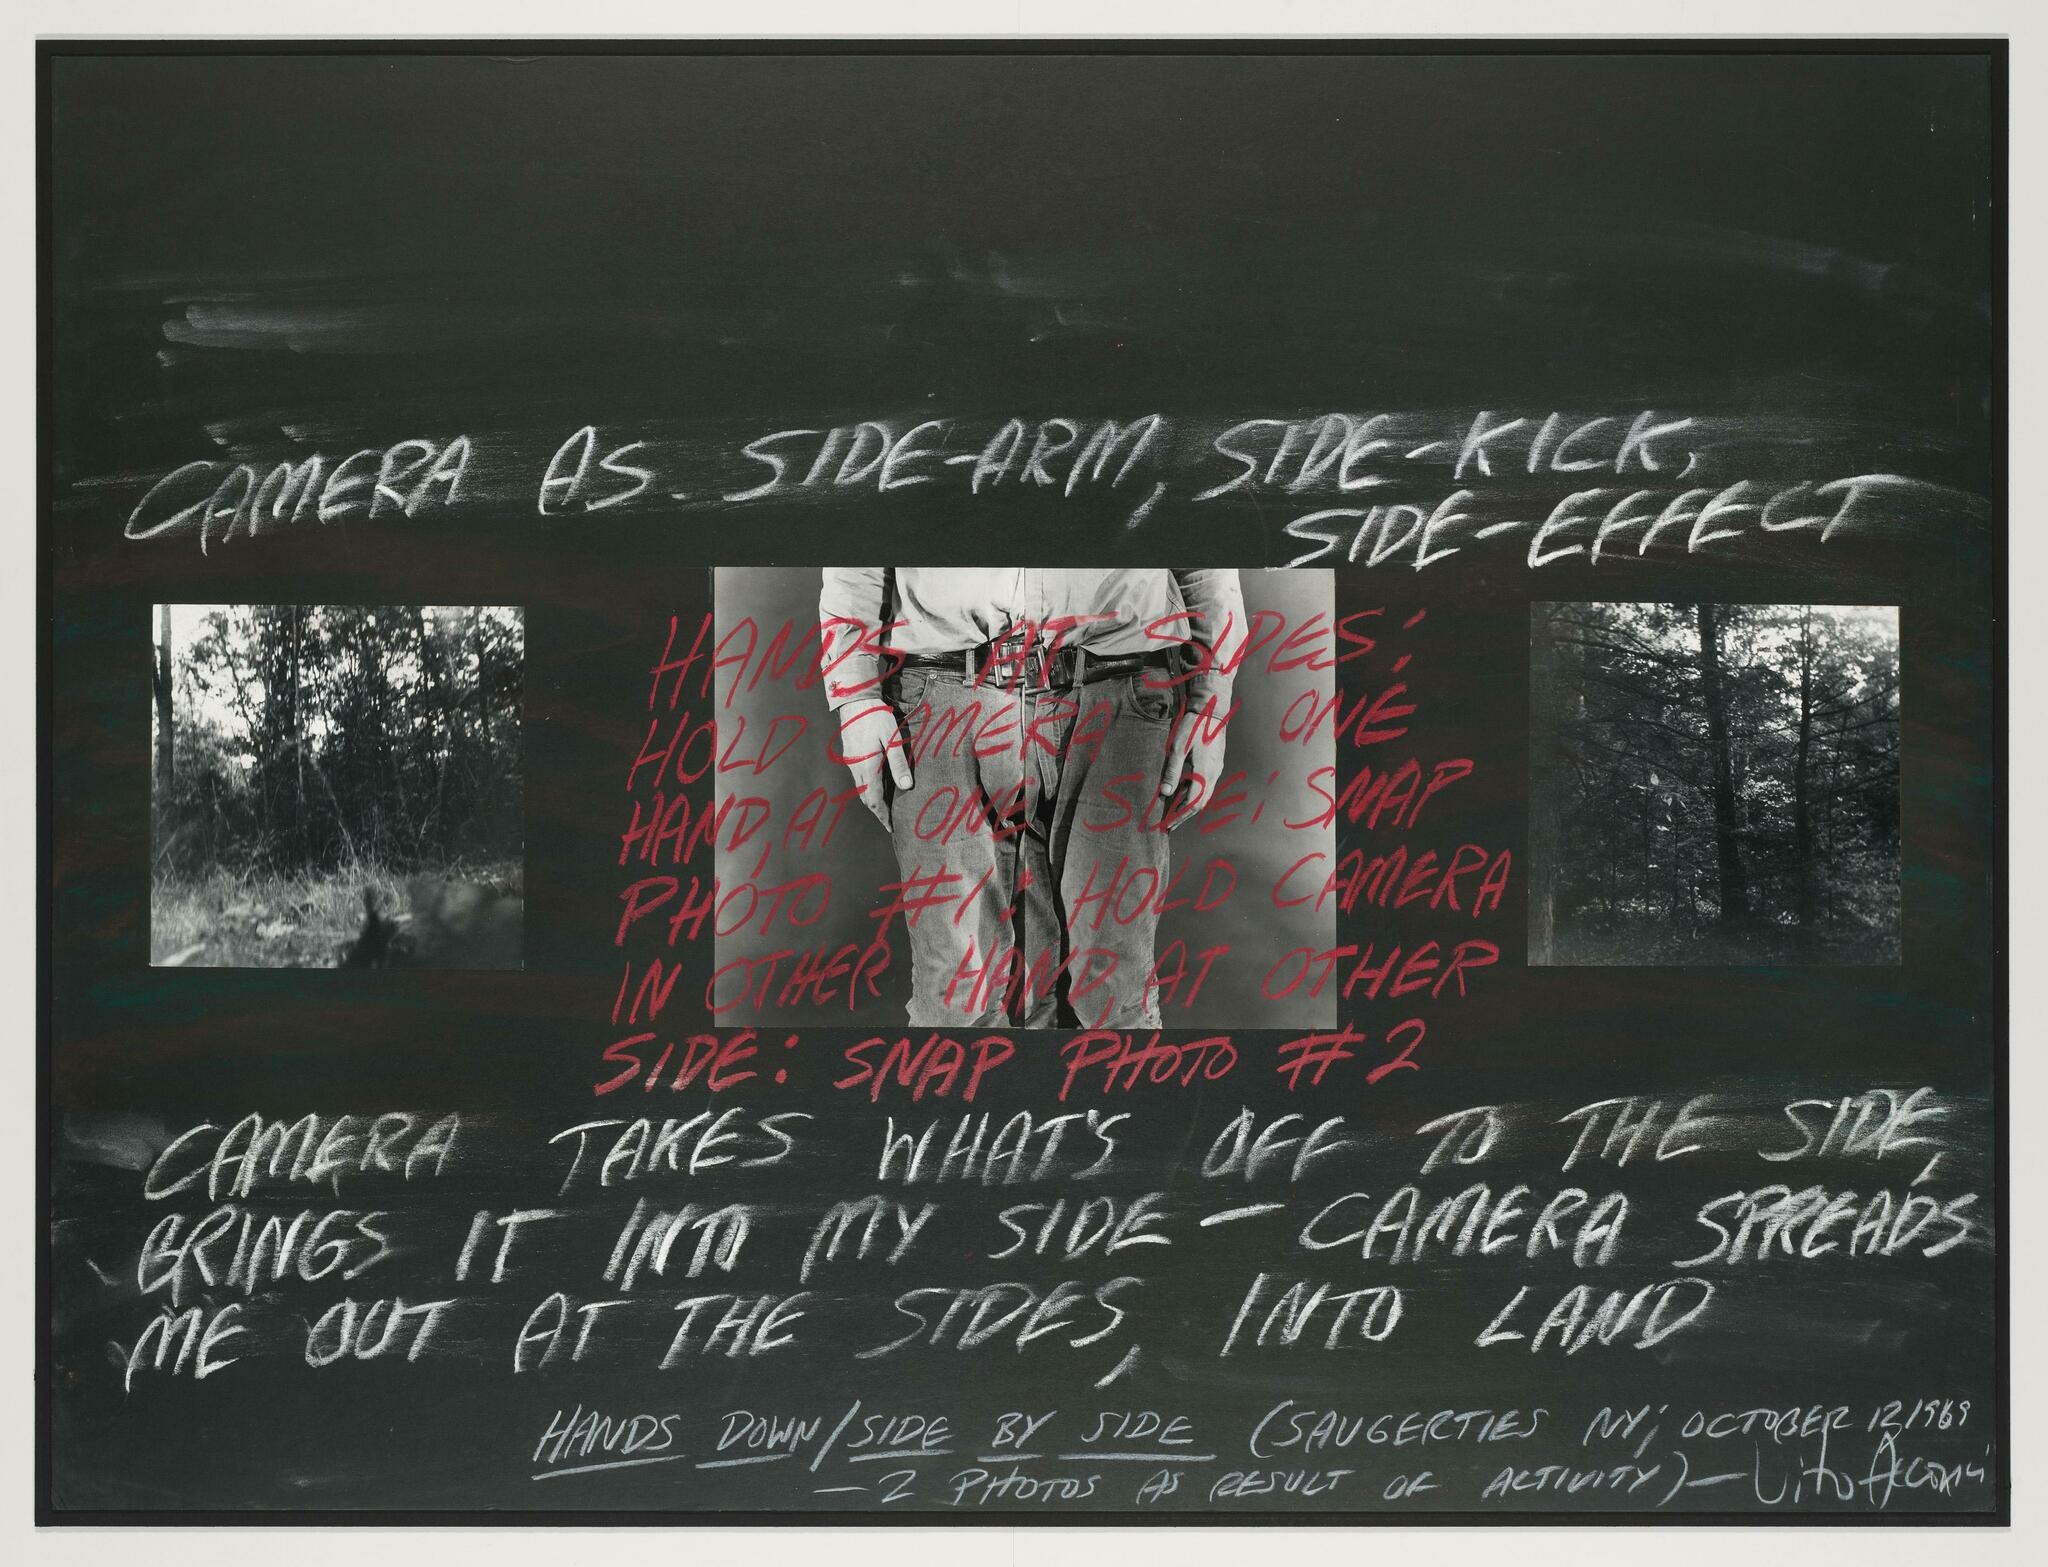 CAMERA AS SIDE-ARM, SIDE-KICK,
SIDE-EFFECT
HANDS AT SIDES:
HOLD CAMERA IN ONE
HAND, AT ONE SIDE; SNAP
PHOTO #1: HOLD CAMERA
IN OTHER HAND, AT OTHER
SIDE: SNAP PHOTO #2
CAMERA TAKES WHAT'S OFF TO THE SIDE,
BRINGS IT INTO MY SIDE — CAMERA SPREADS
ME OUT AT THE SIDES, INTO LAND
HANDS DOWN/SIDE BY SIDE (SAUGERTIES NY; OCTOBER 12, 1969
— 2 PHOTOS AS RESULT OF ACTIVITY) — Vito Acconci